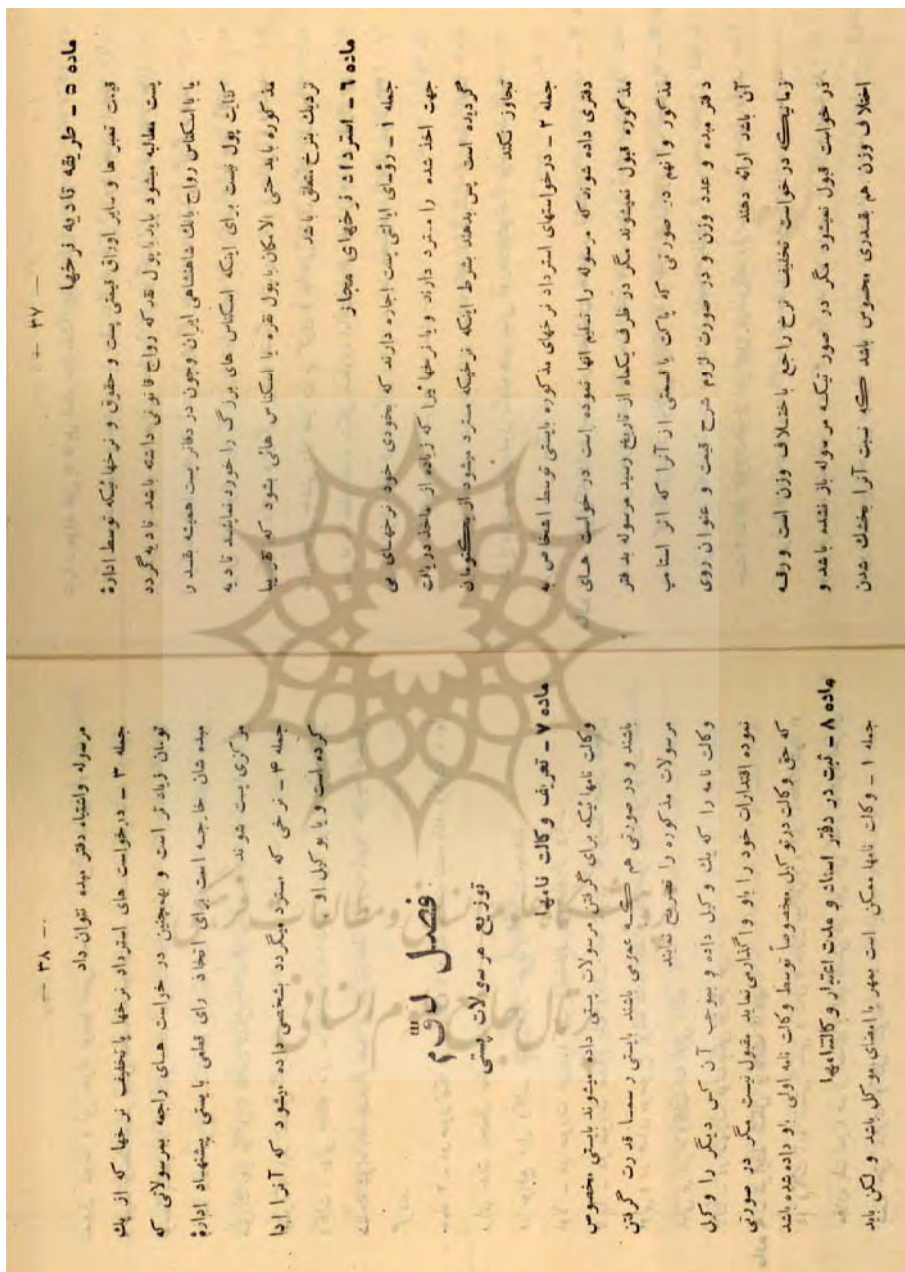 — ۳۷ —
ماده ۵ - طریقه تادیه نرخها
قیمت تمبر ها و سایر اوراق قیمتی پست و حقوق و نرخهائیکه توسط ادارهٔ
پست مطالبه میشود باید با پول نقد که رواج قانونی داشته باشد تادیه گردد
یا با اسکناس رواج بانک شاهنشاهی ایران و چون در دفاتر پست همیشه بقدر
کفایت پول نیست برای اینکه اسکناس های بزرگ را خورد نمایند تادیه
مذکوره باید حتی الامکان با پول نقره یا اسکناس هائی بشود که تقریبا
نزدیک بنرخ متعلق باشد
ماده ۶ - استرداد نرخهای مجاز
جمله ۱ - رؤسای ایالتی پست اجازه دارند که بخودی خود نرخهای بی
جهت اخذ شده را مسترد دارند و یا نرخها ئیرا که زیاده از ماخذ دریافت
گردیده است پس بدهند بشرط اینکه نرخیکه مسترد میشود از یکتومان
تجاوز نکند
جمله ۲ - درخواستهای استرداد نرخهای مذکوره بایستی توسط اشخاص به
دفتری داده شوند که مرسوله را تسلیم آنها نموده است درخواست های
مذکوره قبول نمیشوند مگر در ظرف یکماه از تاریخ رسید مرسوله بدفتر
مذکور و آنهم در صورتی که پاکت یا قسمتی از آنرا که اثر استامپ
دفتر مبده و عدد وزن و در صورت لزوم شرح قیمت و عنوان روی
آن باشد ارائه دهند
زمانیکه درخواست تخفیف نرخ راجع باختلاف وزن است ورقه
درخواست قبول نمیشود مگر در صورتیکه مرسوله باز نشده باشد و
اختلاف وزن هم بقدری محسوس باشد که نسبت آنرا بخشک شدن
— ۳۸ —
مرسوله واشتباه دفتر مبده نتوان داد
جمله ۳ - درخواست های استرداد نرخها یا تخفیف نرخها که از یک
تومان زیاد تر است و بهمچنین در خواست های راجعه بمرسولاتی که
مبده شان خارجه است برای اتخاذ رای قطعی بایستی پیشنهاد ادارهٔ
مرکزی پست شوند
جمله ۴ - نرخی که مسترد میگردد بشخصی داده میشود که آنرا ادا
کرده است و یا بوکیل او
فصل
توزیع مرسولات پستی
ماده ۷ - تعریف وکالت نامها
وکالت نامهائیکه برای گرفتن مرسولات پستی داده میشوند بایستی مخصوص
باشند و در صورتی هم که عمومی باشند بایستی رسما قدرت گرفتن
مرسولات مذکوره را تصریح نمایند
وکالت نامه را که یک وکیل داده و بموجب آن کس دیگر را وکیل
نموده اقتدارات خود را باو واگذار می نماید مقبول نیست مگر در صورتی
که حق وکالت در توکیل مخصوصاً توسط وکالت نامه اولی باو داده شده باشد
ماده ۸ - ثبت در دفتر اسناد و مدت اعتبار وکالتنامها
جمله ۱ - وکالت نامها ممکن است بمهر یا امضای موکل باشد و لکن باید